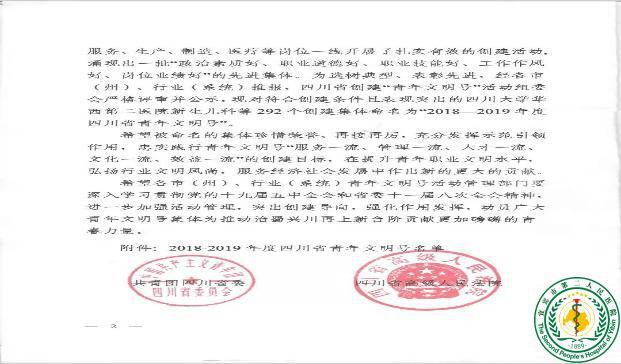 服务、生产、制造、医疗等岗位一线开展了扎实有效的创建活动,
涌现出一批“政治素质好、职业道德好、职业技能好、工作作风
好、岗位业绩好”的先进集体。为选树典型、表彰先进，经各市
（州）、行业（系统）推报，四川省创建“青年文明号”活动组委
会严格评审并公示，现对符合创建条件且表现突出的四川大学华
西第二医院新生儿科等292个创建集体命名为“2018—2019年度
四川省青年文明号”。
希望被命名的集体珍惜荣誉、再接再厉，充分发挥示范引领
作用，忠实践行青年文明号“服务一流、管理一流、人才一流、
文化一流、效益一流”的创建目标，在提升青年职业文明水平，
弘扬行业文明风尚，服务经济社会发展中作出新的更大的贡献。
希望各市（州）、行业（系统）青年文明号活动管理部门要
深入学习贯彻党的十九届五中全会和省委十一届八次全会精神，
进一步加强活动管理，突出创建导向，强化作用发挥，动员广大
青年文明号集体为推动治蜀兴川再上新台阶贡献更加磅礴的青
春力量。
附件：2018-2019年度四川省青年文明号名单
共青团四川省委 四川省高级人民法院
四川省委员会
四川省高级人民法院
— 2 —
宜宾市第二人民医院
1889
The Second People's Hospital of Yibin